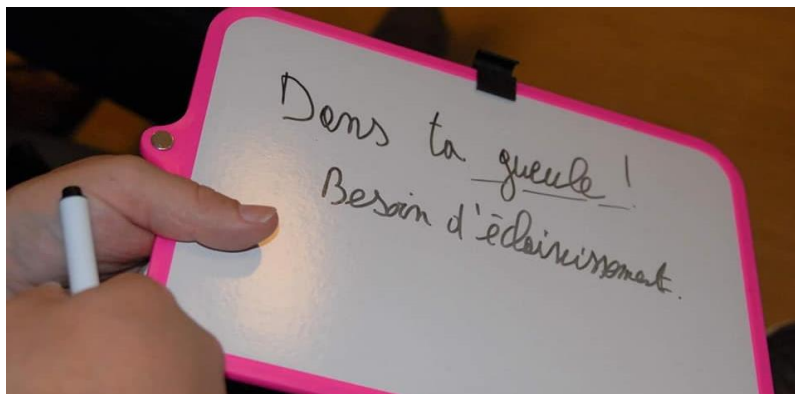 Dans ta gueule !
Besoin d'éclaircissement.